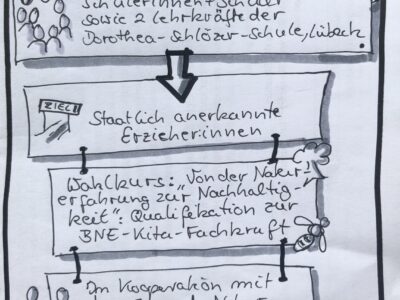 Schüler:innen + Schüler
sowie 2 Lehrkräfte der
Dorothea-Schlözer-Schule, Lübeck
ZIEL
Staatlich anerkannte
Erzieher:innen
Wahlkurs: "Von der Natur-
erfahrung zur Nachhaltig-
keit": Qualifikation zur
BNE-Kita-Fachkraft
Im Kooperation mit